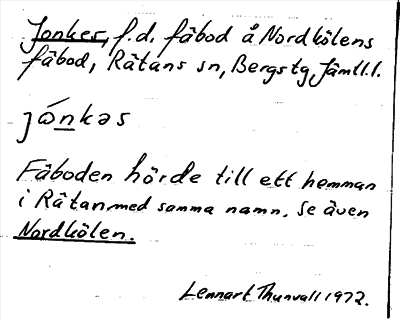 Jonkes, f.d. fäbod å Nordkölens
fäbod, Rätans sn, Bergs tg, Jämtl. l.
jȯ́nkəs
Fäboden hörde till ett hemman
i Rätan med samma namn. Se även
Nordkölen.
Lennart Thunvall 1972.